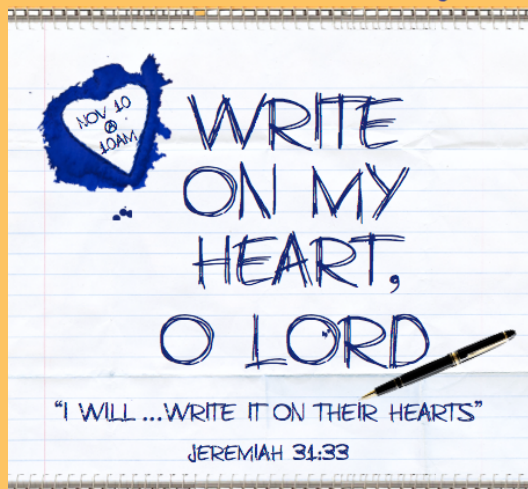 NOV 10
@
10AM
WRITE
ON MY
HEART,
O LORD
"I WILL ...WRITE IT ON THEIR HEARTS"
JEREMIAH 31:33